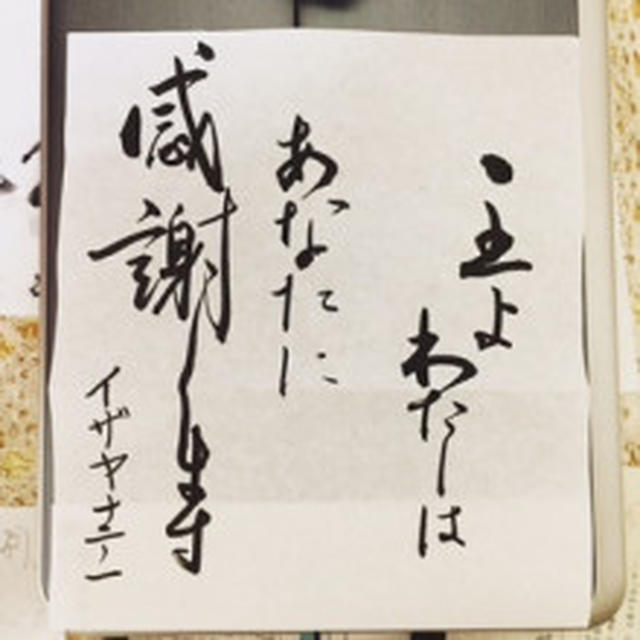 主よ
わたしは
あなたに
感謝します
イザヤ十二ノ一